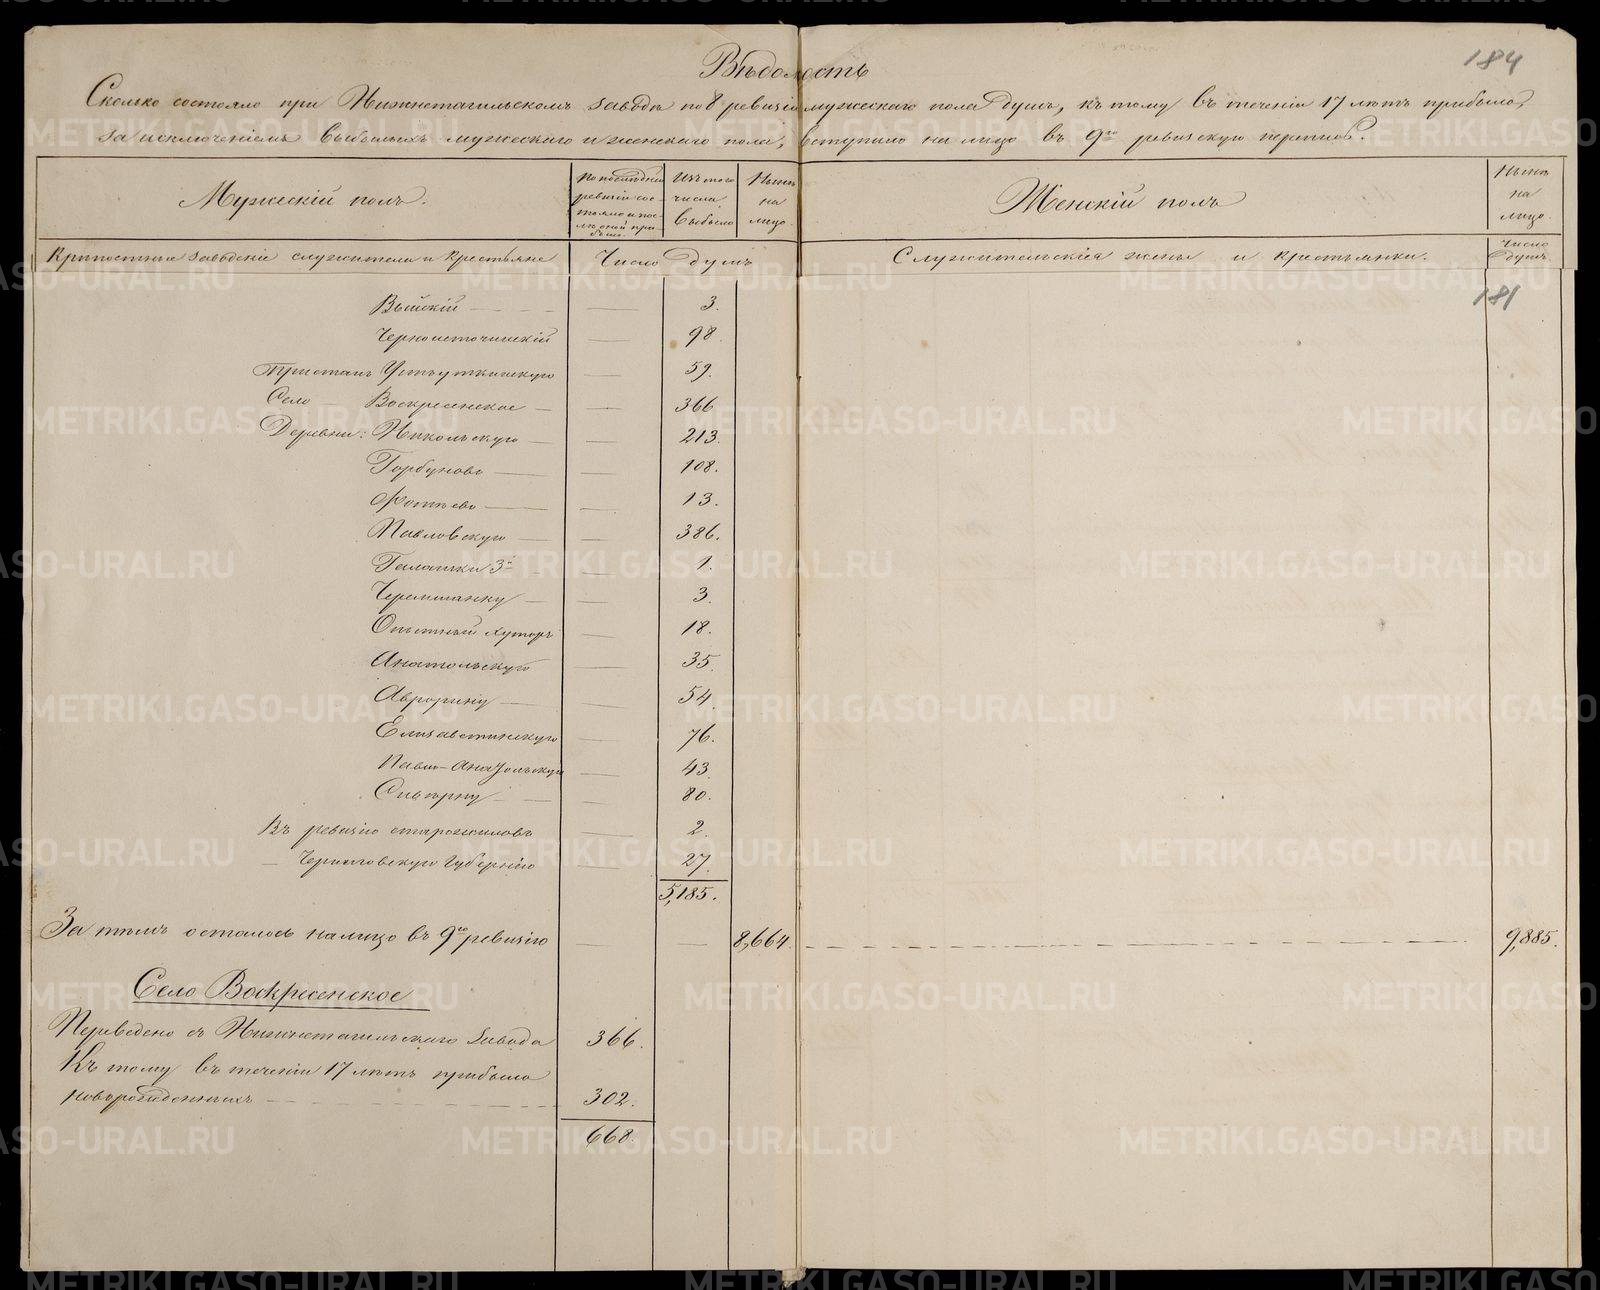 184
Вѣдомость
Сколько состояло при Нижнетагильскомъ заводѣ по 8 ревизіи мужескаго пола душъ, къ тому въ теченіи 17 лѣтъ прибыло,
за исключеніемъ выбылыхъ мужескаго и женскаго пола, вступило на лицо въ 9ю ревизскую перепись.
Мужескій полъ.
По послѣдней ревизіи состояло и послѣ оной прибыло.
Изъ того числа выбыло
Нынѣ на лицо.
Женскій полъ
Нынѣ на лицо.
Крѣпостные заводскіе служители и крестьяне
Число душъ
Служительскія жены и крестьянки.
Число душъ.
181
Выйскій 3.
Черноисточинскій 98.
Пристань Усть-уткинскую 59.
Село Воскресенское 366
Деревни: Никольскую 213.
Горбуново 108.
Фотѣево 13.
Павловскую 386.
Галашки 3й 1.
Черемшанку 3.
Опытный хуторъ 18.
Анатольскую 35.
Аврорину 54.
Елизаветинскую 76.
Павло-Анатольскую 43.
Сиверну 80.
Въ ревизію старожиловъ 2.
— Черниговскую губернію 27.
5,185.
За тѣмъ осталось на лицо въ 9ю ревизію 8,664. 9,885.
Село Воскресенское
Переведено съ Нижнетагильскаго завода 366.
Къ тому въ теченіи 17 лѣтъ прибыло
новорожденныхъ 302.
668.
METRIKI.GASO-URAL.RU